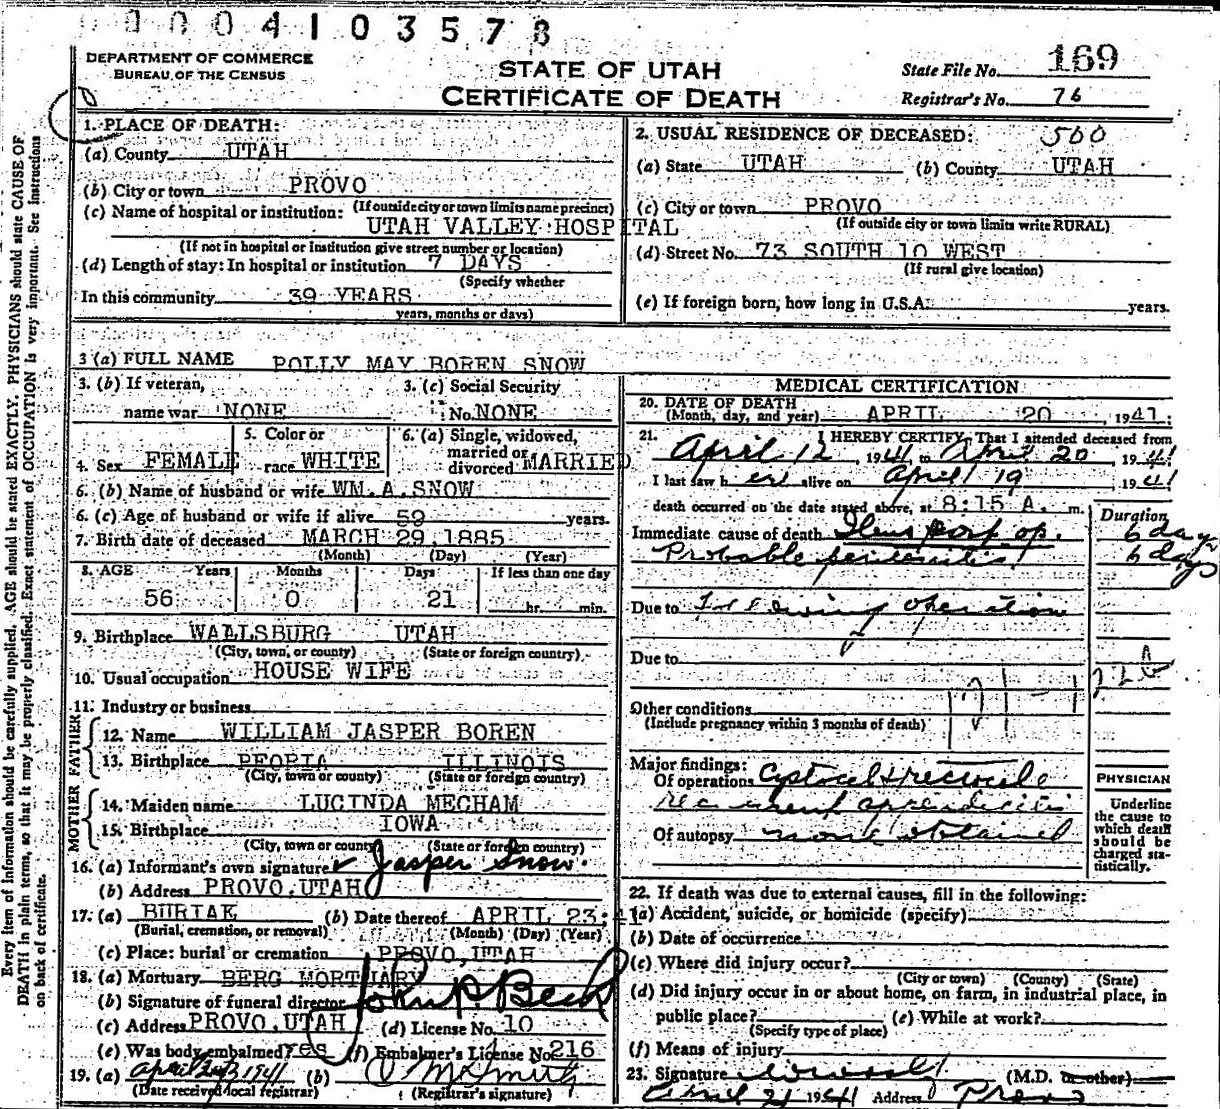 0004103578
DEPARTMENT OF COMMERCE
BUREAU OF THE CENSUS
STATE OF UTAH
CERTIFICATE OF DEATH
State File No. 169
Registrar's No. 76
1. PLACE OF DEATH:
(a) County UTAH
(b) City or town PROVO
(If outside city or town limits name precinct)
(c) Name of hospital or institution:
UTAH VALLEY HOSPITAL
(If not in hospital or institution give street number or location)
(d) Length of stay: In hospital or institution 7 DAYS
(Specify whether
In this community 39 YEARS
years, months or days)
2. USUAL RESIDENCE OF DECEASED: 500
(a) State UTAH (b) County UTAH
(c) City or town PROVO
(If outside city or town limits write RURAL)
(d) Street No. 73 SOUTH 10 WEST
(If rural give location)
(e) If foreign born, how long in U.S.A. years.
3 (a) FULL NAME POLLY MAY BOREN SNOW
3. (b) If veteran,
name war NONE
3. (c) Social Security
No. NONE
4. Sex FEMALE
5. Color or
race WHITE
6. (a) Single, widowed,
married or
divorced MARRIED
6. (b) Name of husband or wife WM. A. SNOW
6. (c) Age of husband or wife if alive 59 years.
7. Birth date of deceased MARCH 29, 1885
(Month) (Day) (Year)
8. AGE Years Months Days If less than one day
56 0 21 hr. min.
9. Birthplace WALLSBURG UTAH
(City, town, or county) (State or foreign country)
10. Usual occupation HOUSE WIFE
11. Industry or business
FATHER
12. Name WILLIAM JASPER BOREN
13. Birthplace PEORIA ILLINOIS
(City, town or county) (State or foreign country)
MOTHER
14. Maiden name LUCINDA MECHAM
15. Birthplace IOWA
(City, town or county) (State or foreign country)
16. (a) Informant's own signature Jasper Snow.
(b) Address PROVO, UTAH
17. (a) BURIAL (b) Date thereof APRIL 23, 41
(Burial, cremation, or removal) (Month) (Day) (Year)
(c) Place: burial or cremation PROVO, UTAH
18. (a) Mortuary BERG MORTUARY
(b) Signature of funeral director John P Beck
(c) Address PROVO, UTAH (d) License No. 10
(e) Was body embalmed? Yes (f) Embalmer's License No 216
19. (a) April 1941 (b)
(Date received local registrar) (Registrar's signature)
MEDICAL CERTIFICATION
20. DATE OF DEATH
(Month, day, and year) APRIL 20, 1941.
21. I HEREBY CERTIFY, That I attended deceased from
April 12, 1941 to April 20, 1941
I last saw her alive on April 19, 1941
death occurred on the date stated above, at 8:15 A. m.
Duration
Immediate cause of death Ileus post op. 6 days
Probable peritonitis 6 days
Due to Following operation
Due to
Other conditions
(Include pregnancy within 3 months of death)
Major findings:
Of operations cystocele & rectocele
Recurrent appendicitis
Of autopsy none obtained
PHYSICIAN
Underline
the cause to
which death
should be
charged sta-
tistically.
22. If death was due to external causes, fill in the following:
(a) Accident, suicide, or homicide (specify)
(b) Date of occurrence
(c) Where did injury occur?
(City or town) (County) (State)
(d) Did injury occur in or about home, on farm, in industrial place, in
public place? (e) While at work?
(Specify type of place)
(f) Means of injury
23. Signature (M.D. or other)
April 21 1941 Address Provo
Every item of information should be carefully supplied. AGE should be stated EXACTLY. PHYSICIANS should state CAUSE OF
DEATH in plain terms, so that it may be properly classified. Exact statement of OCCUPATION is very important. See instructions
on back of certificate.